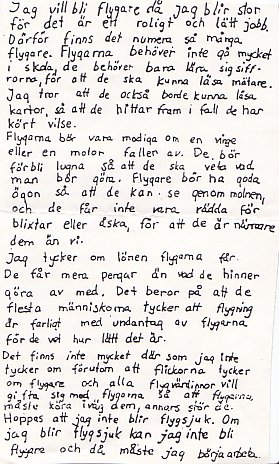 Jag vill bli flygare då jag blir stor
för det är ett roligt och lätt jobb.
Därför finns det numera så många
flygare. Flygarna behöver inte gå mycket
i skola, de behöver bara lära sig siff-
rorna, för att de ska kunna läsa mätare.
Jag tror att de också borde kunna läsa
kartor, så att de hittar fram i fall de har
kört vilse.
Flygarna bör vara modiga om en vinge
eller en motor faller av. De bör
förbli lugna så att de ska veta vad
man bör göra. Flygare bör ha goda
ögon så att de kan se genom molnen,
och de får inte vara rädda för
blixtar eller åska, för att de är närmare
dem än vi.
Jag tycker om lönen flygarna får.
De får mera pengar än vad de hinner
göra av med. Det beror på att de
flesta människorna tycker att flygning
är farligt med undantag av flygarna
för de vet hur lätt det är.
Det finns inte mycket där som jag inte
tycker om förutom att flickorna tycker
om flygare och alla flygvärdinnor vill
gifta sig med flygarna så att flygarna
måste köra iväg dem, annars stör de.
Hoppas att jag inte blir flygsjuk. Om
jag blir flygsjuk kan jag inte bli
flygare och då måste jag börja arbeta.